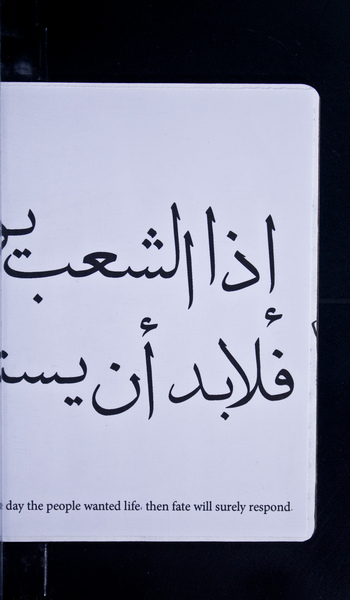 إذا الشعب
فلابد أن
day the people wanted life, then fate will surely respond.